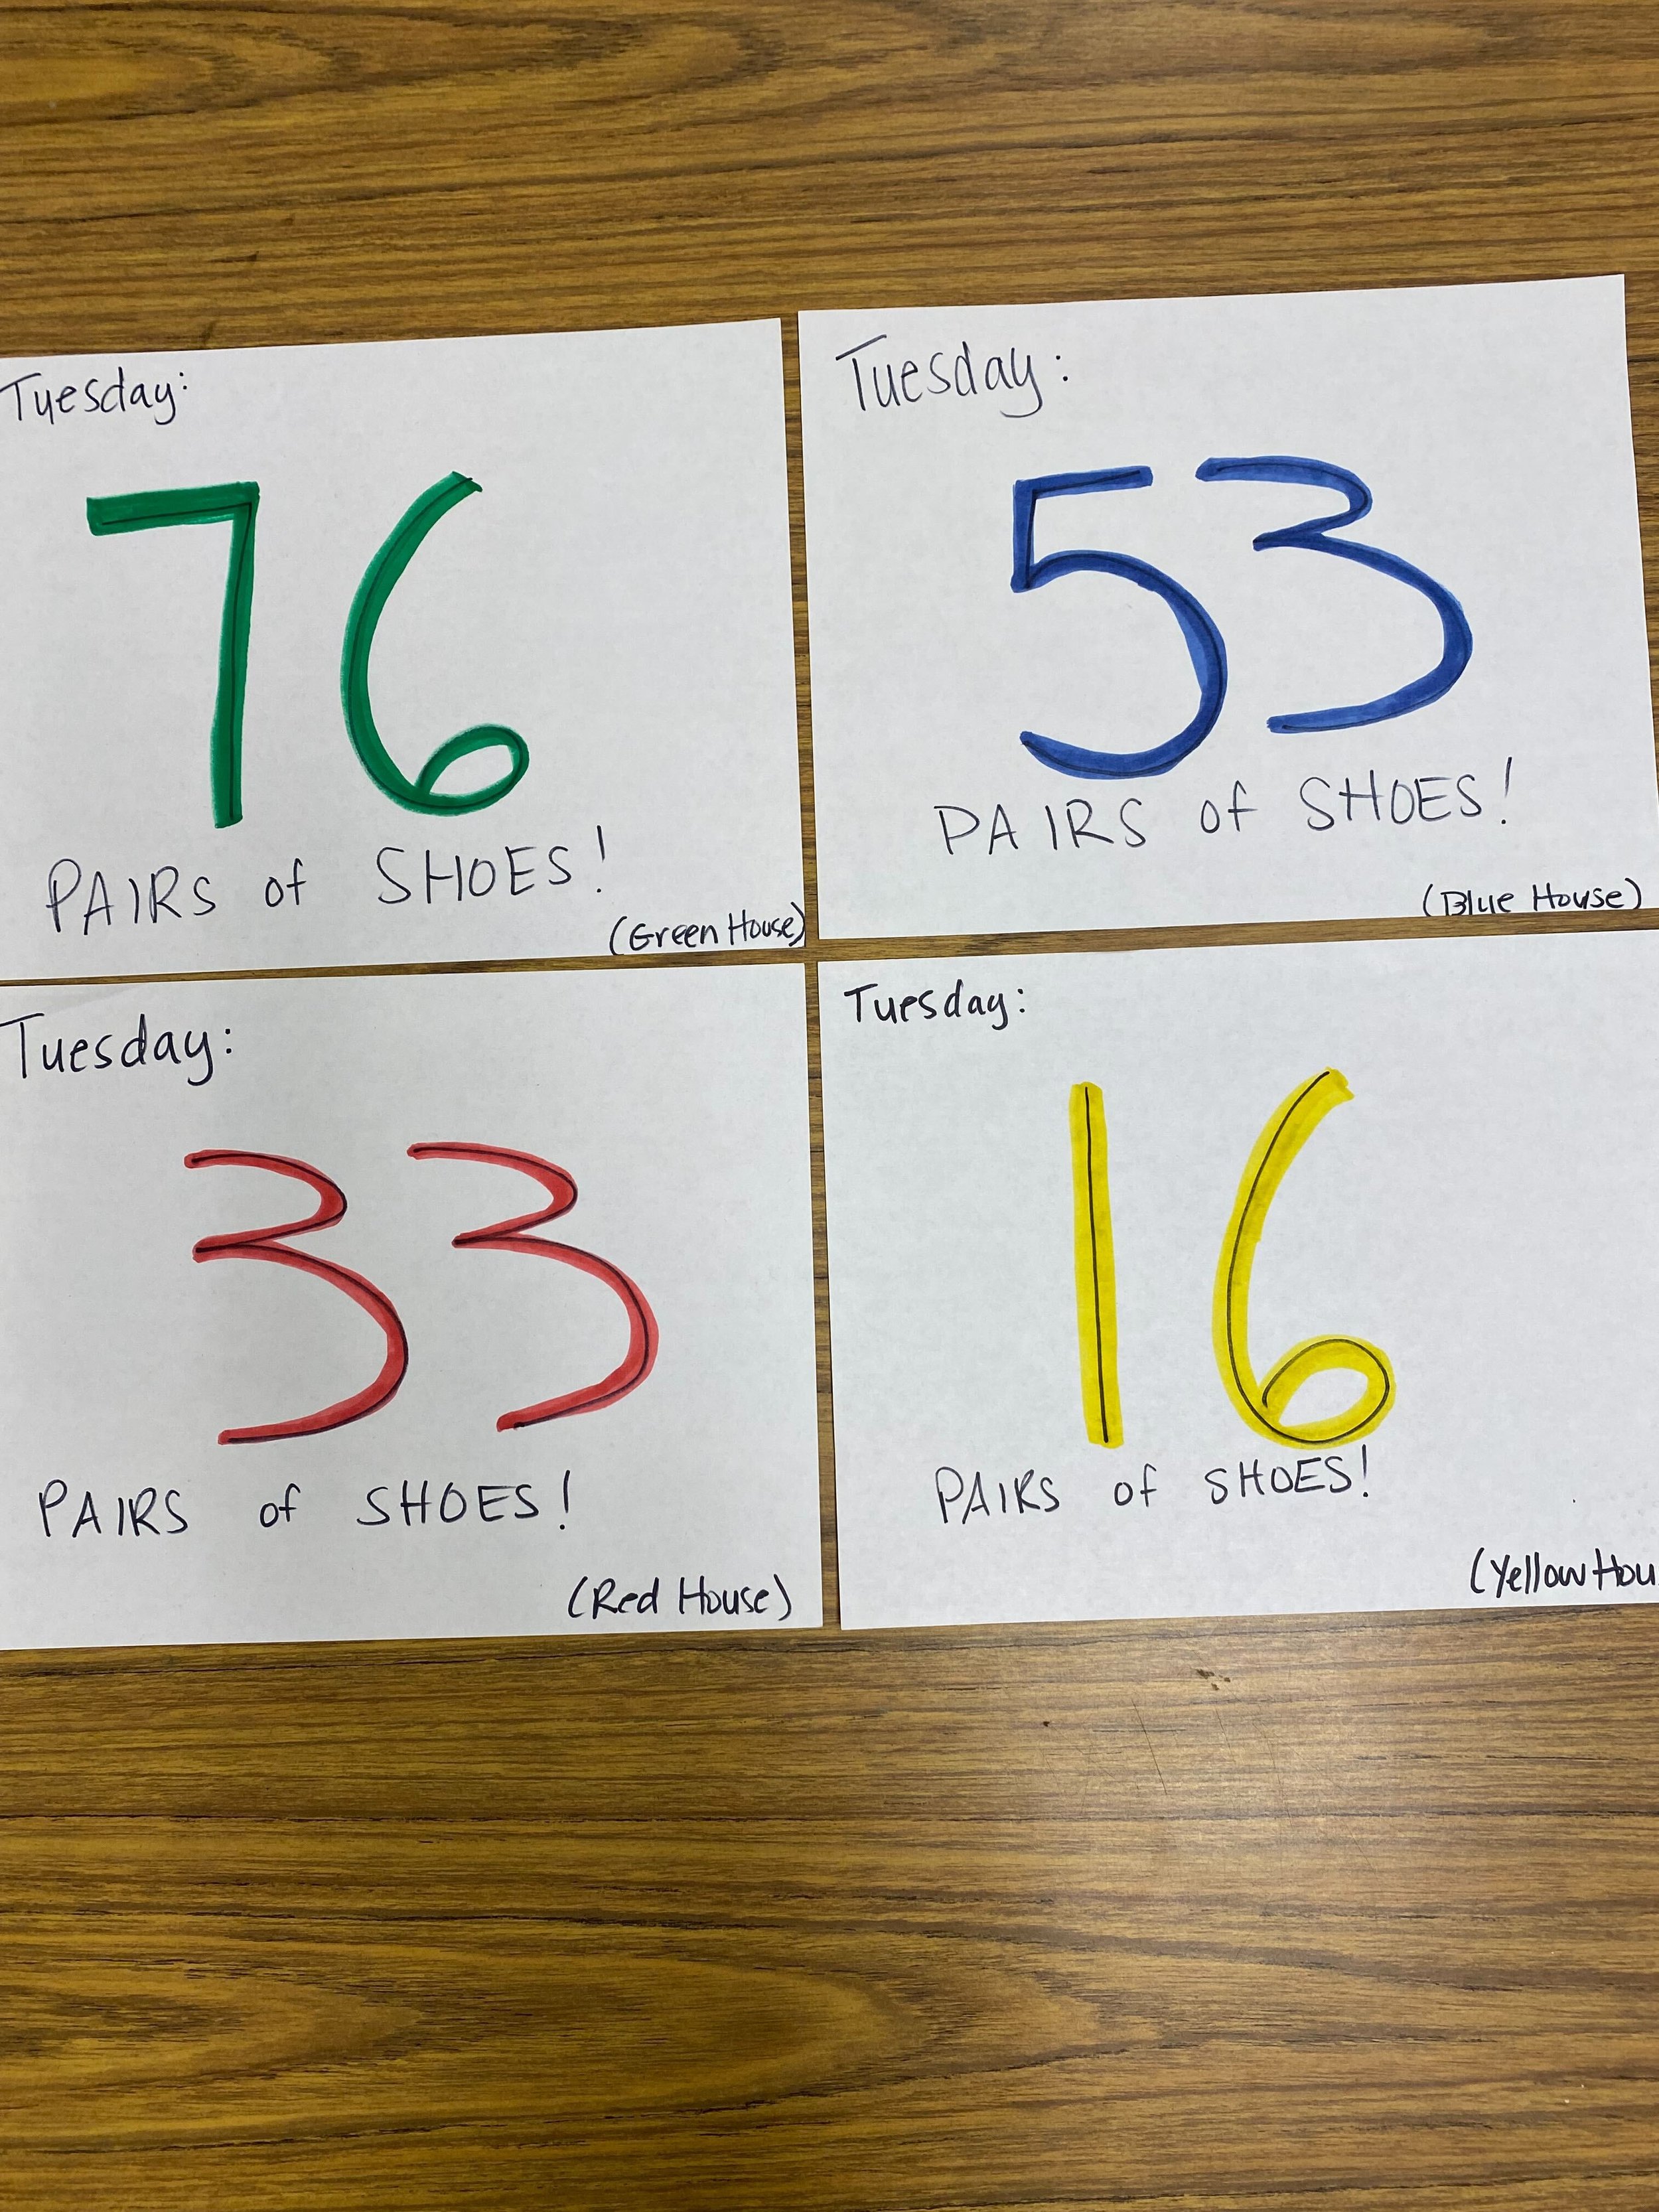 Tuesday:
76
PAIRS of SHOES!
(Green House)
Tuesday:
53
PAIRS of SHOES!
(Blue House)
Tuesday:
33
PAIRS of SHOES!
(Red House)
Tuesday:
16
PAIRS of SHOES!
(Yellow Hou